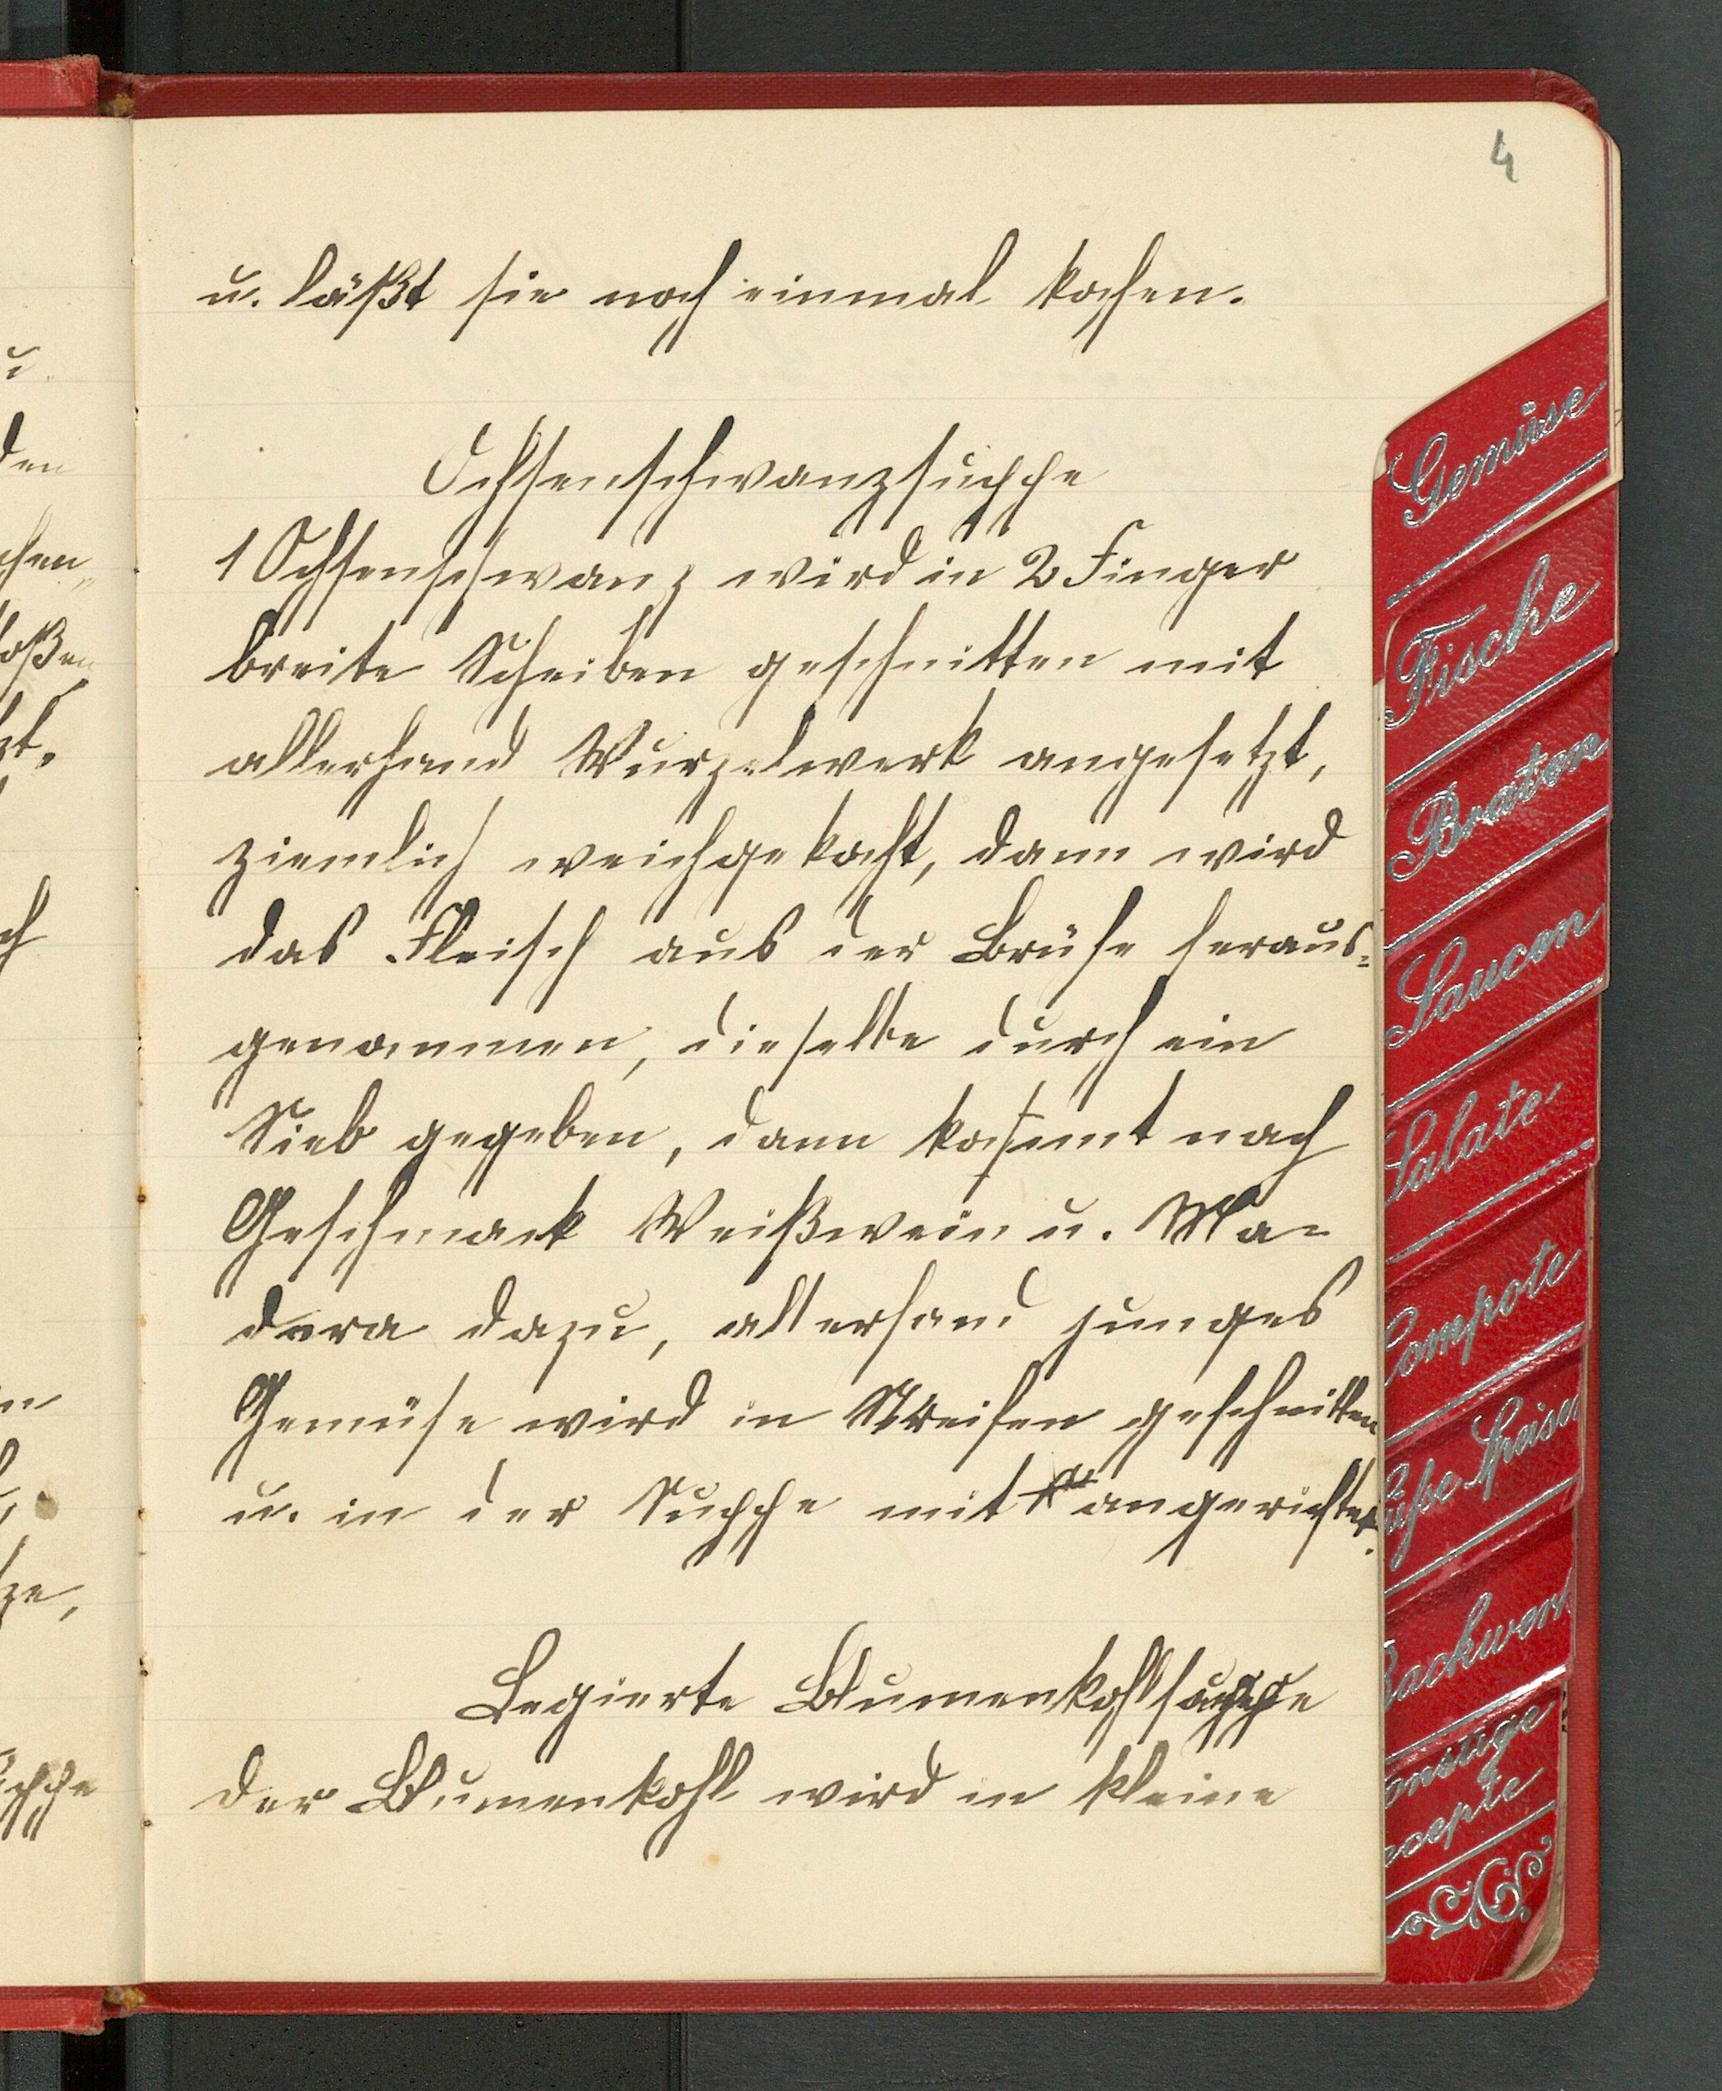 4
u. läßt sie noch einmal kochen.
Ochsenschwanzsuppe
1 Ochsenschwanz wird in 2 Finger
breite Scheiben geschnitten mit
allerhand Wurzelwerk angesetzt,
ziemlich weichgekocht, dann wird
das Fleisch aus der Brühe heraus-
genommen, dieselbe durch ein
Sieb gegeben, dann kommt nach
Geschmack Weißwein u. Ma-
dera dazu, allerhand junges
Gemüse wird in Streifen geschnitten
u. in der Suppe mit angerichtet.
Legierte Blumenkohlsuppe
Der Blumenkohl wird in kleine
Gemüse
Fische
Braten
Saucen
Salate
Compote
üße Speisen
Backwerk
onstige
ecepte